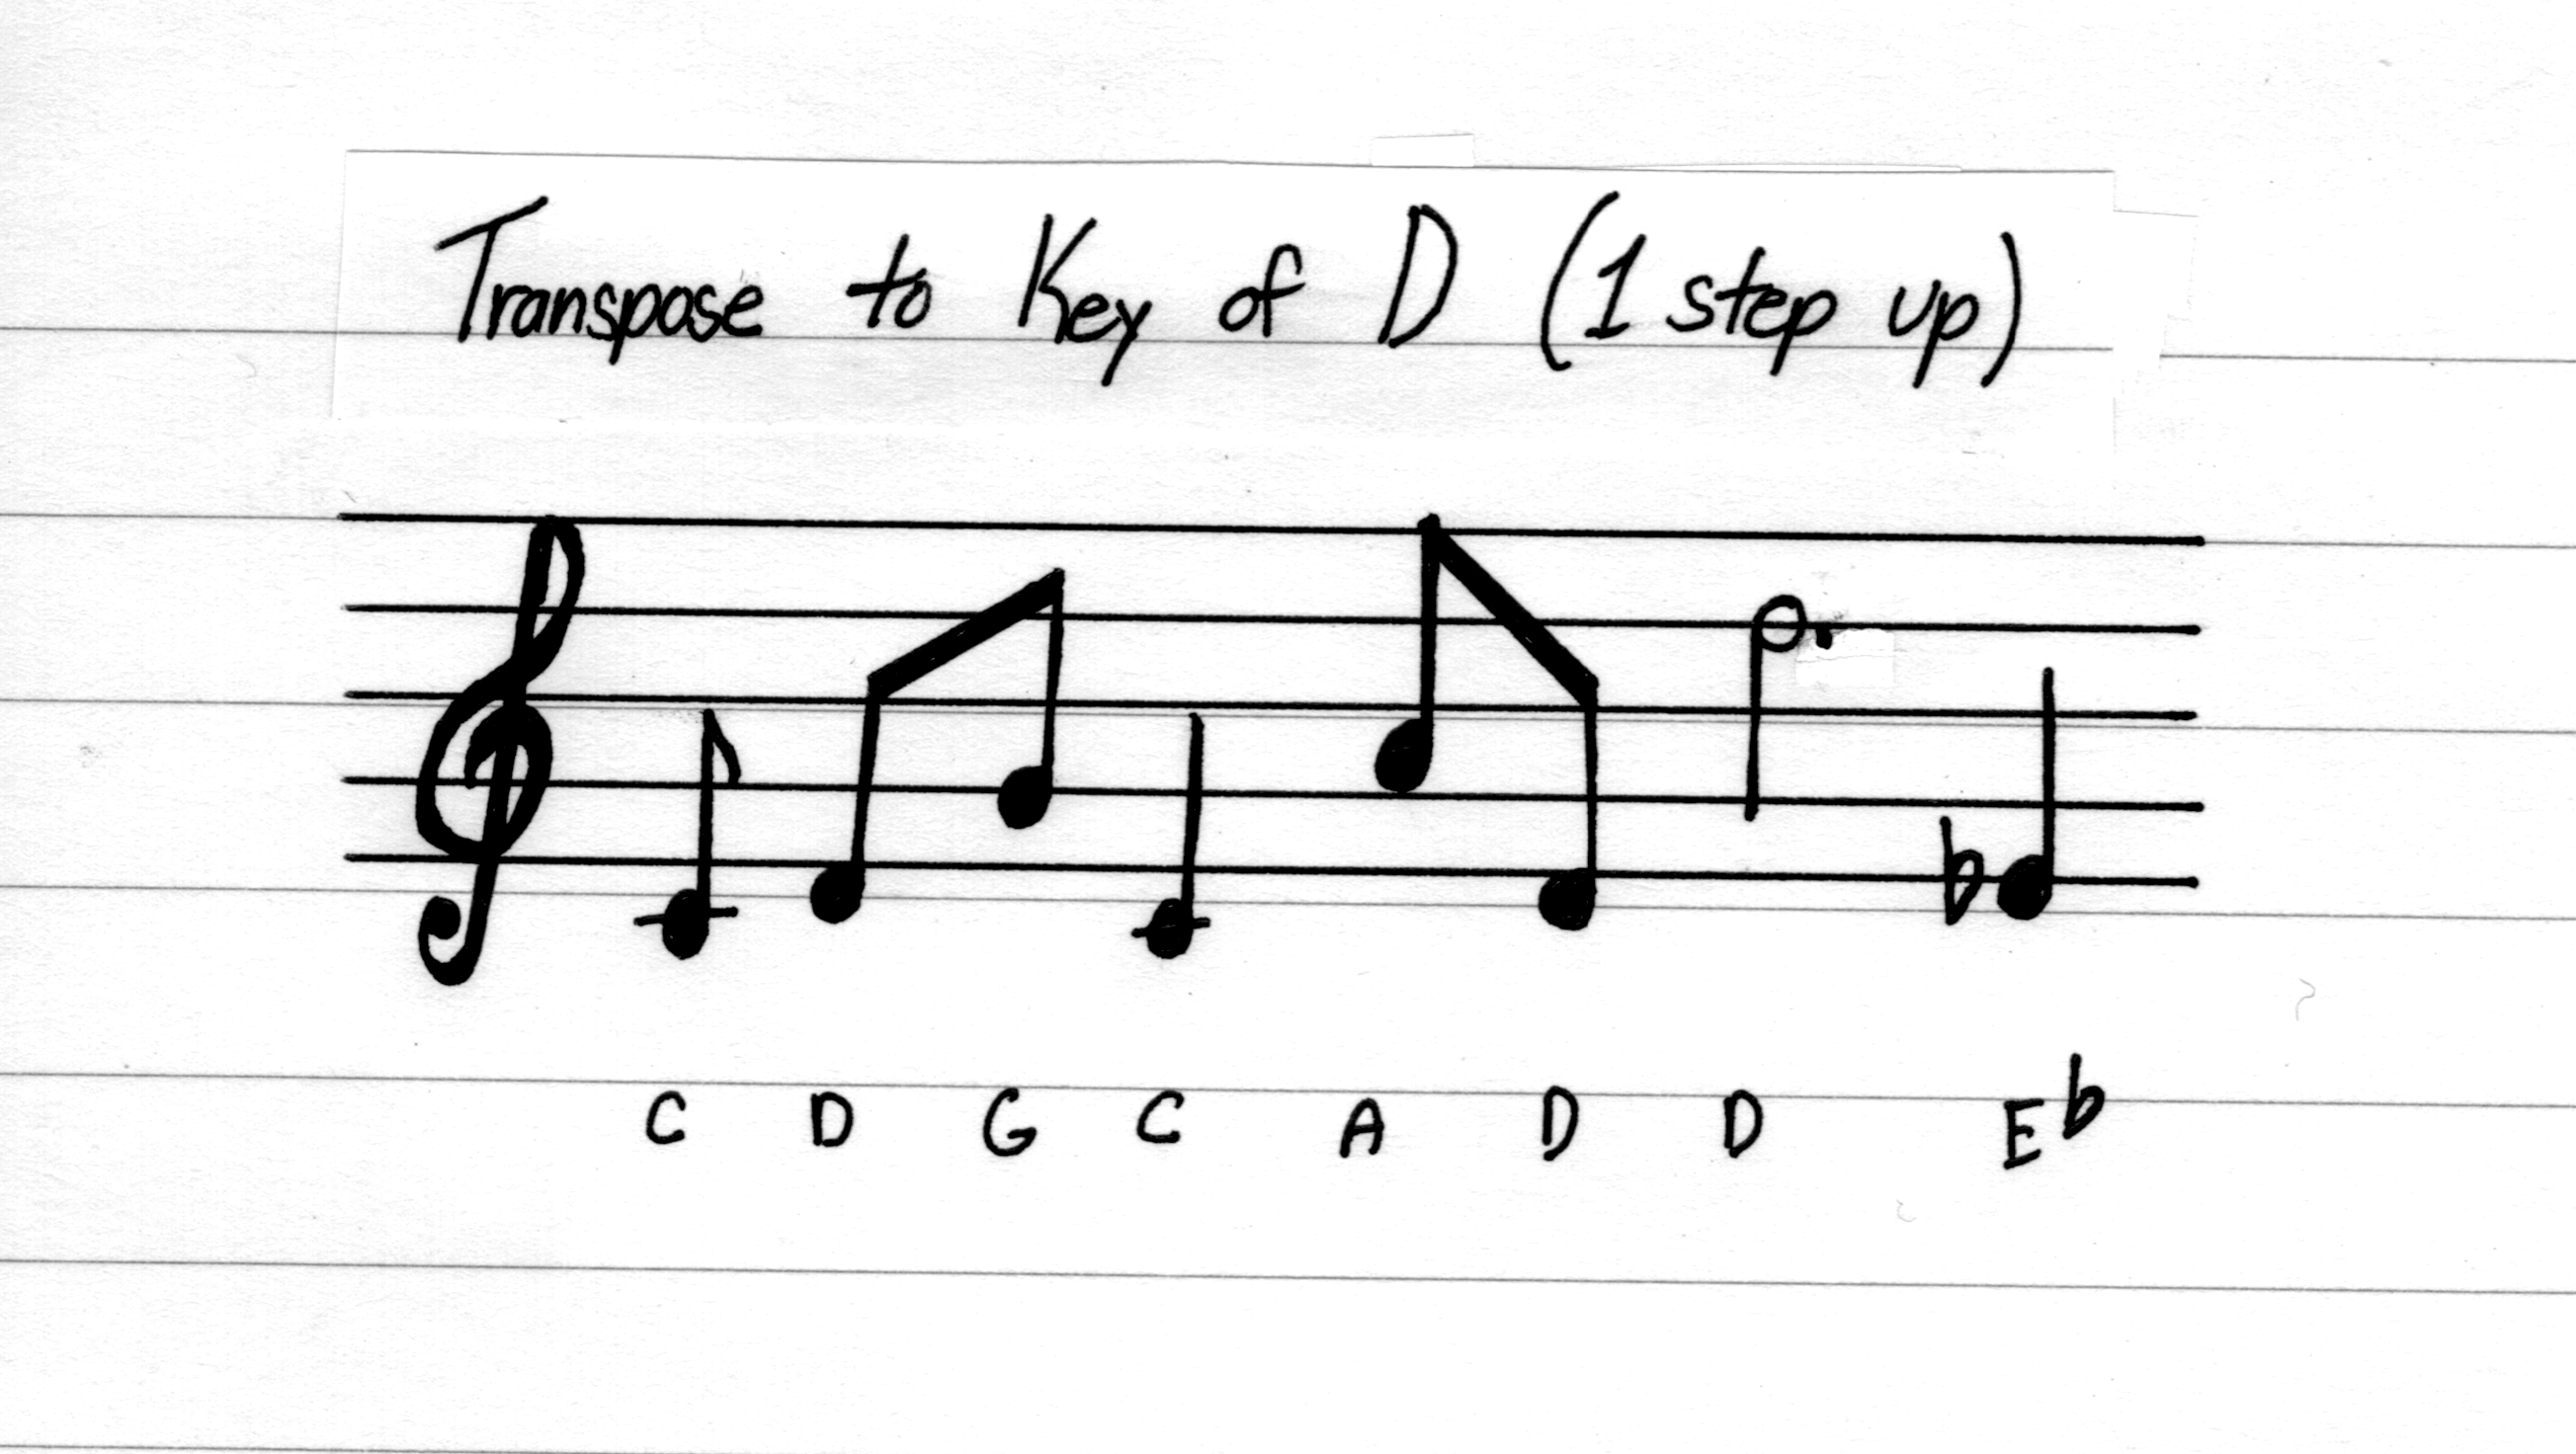 Transpose to Key of D (1 step up)
C D G C A D D E♭